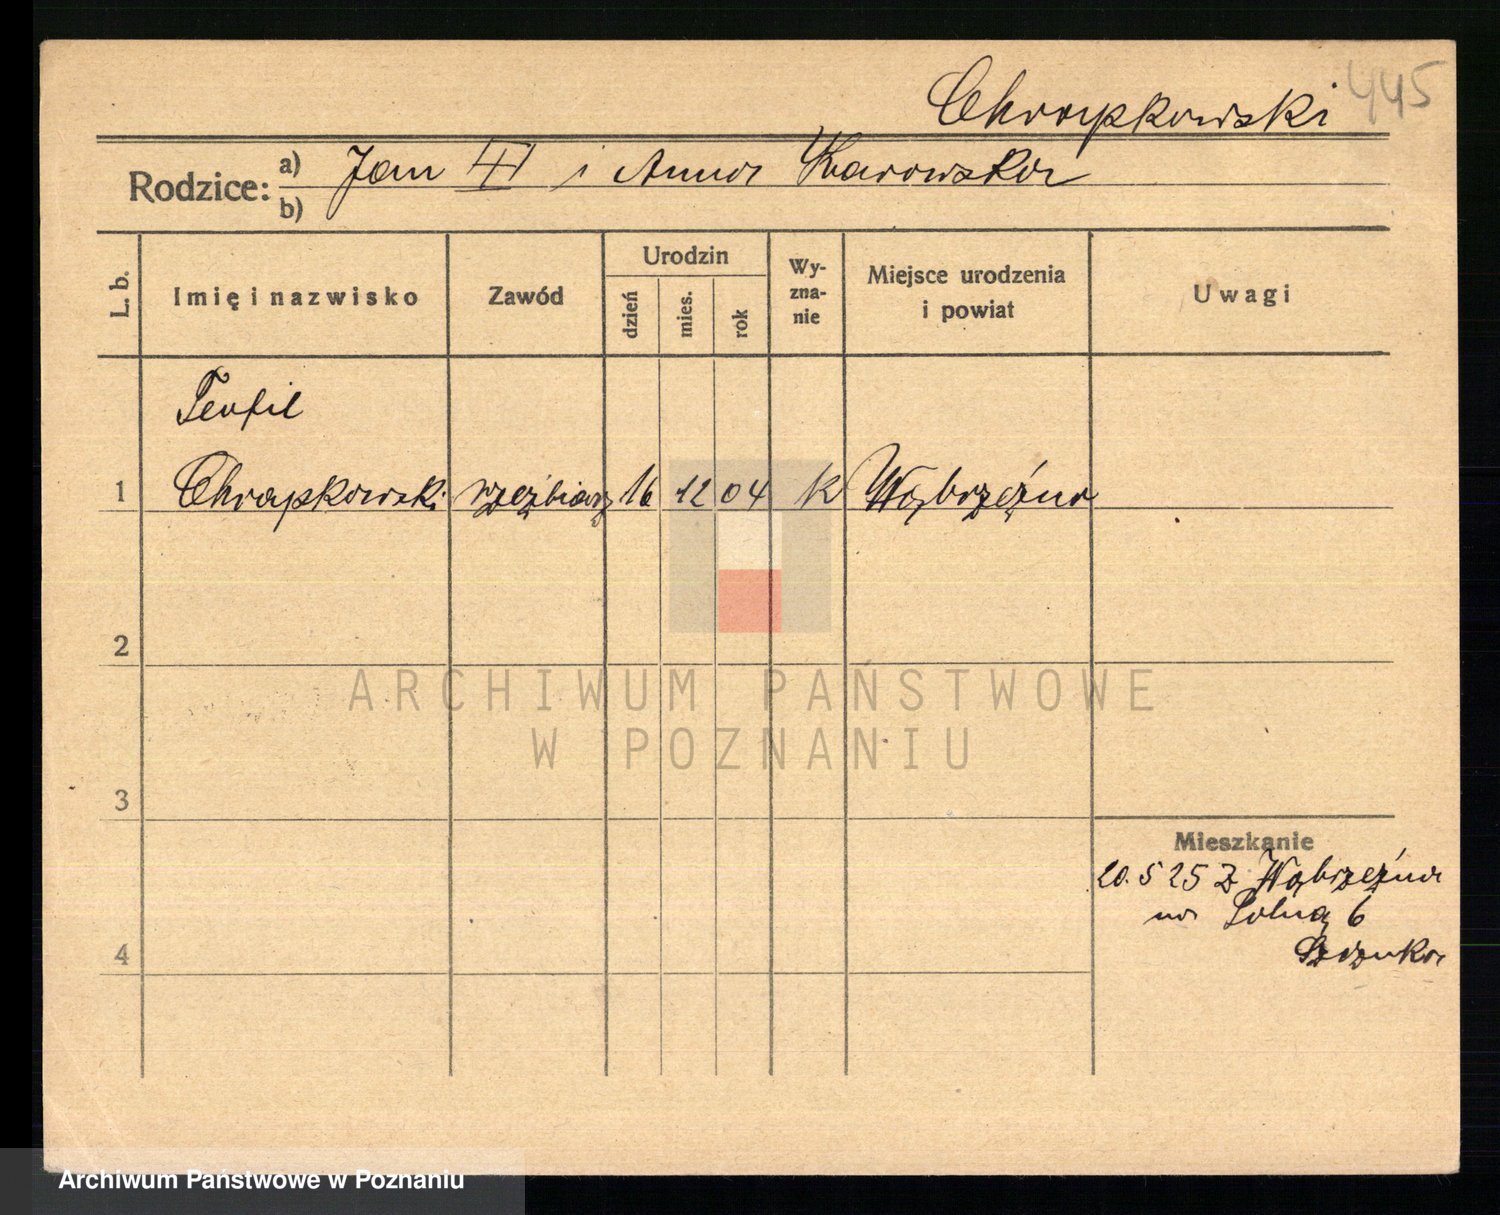 445
Chrapkowski
Rodzice: a) Jan i Anna Karowska
b)
L. b. Imię i nazwisko Zawód Urodzin dzień mies. rok Wy-zna-nie Miejsce urodzenia i powiat Uwagi
Teofil
1 Chrapkowski rzeźbiarz 16 12 04 k Wąbrzeźna
2
3
4
Mieszkanie
20. 5 25 z Wąbrzeźna
na Polną 6
ARCHIWUM PAŃSTWOWE
W POZNANIU
Archiwum Państwowe w Poznaniu